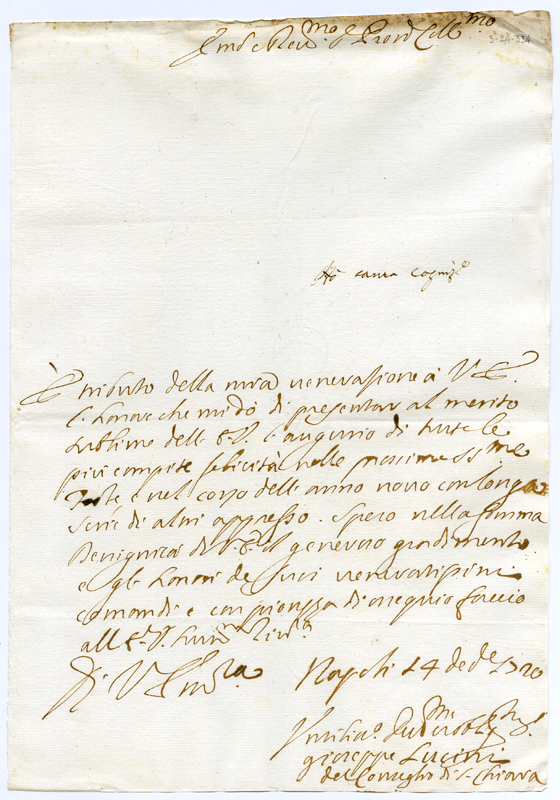 Em.o e Rev.mo Sig.r Prõn Coll.mo
3-24-334
Hò cautta Cogniz.e
È tributo della mia venerazione à V. E.
l'honore che mi dò di presentar al merito
sublime dell' E. V. l'augurio di tutte le
più compite felicità nelle prossime ss.me
Feste e nel corso dell' anno novo con longa
serie di altri appresso. Spero nella somma
Benignità di V. E. il generoso gradimento
e gli honori de suoi veneratissimi
comandi e con pienezza di ossequio faccio
all' E. V.
Di V. Em.za
Napoli 14 de Xbre 1720
Giuseppe Lucini
del Conseglio di S. Chiara